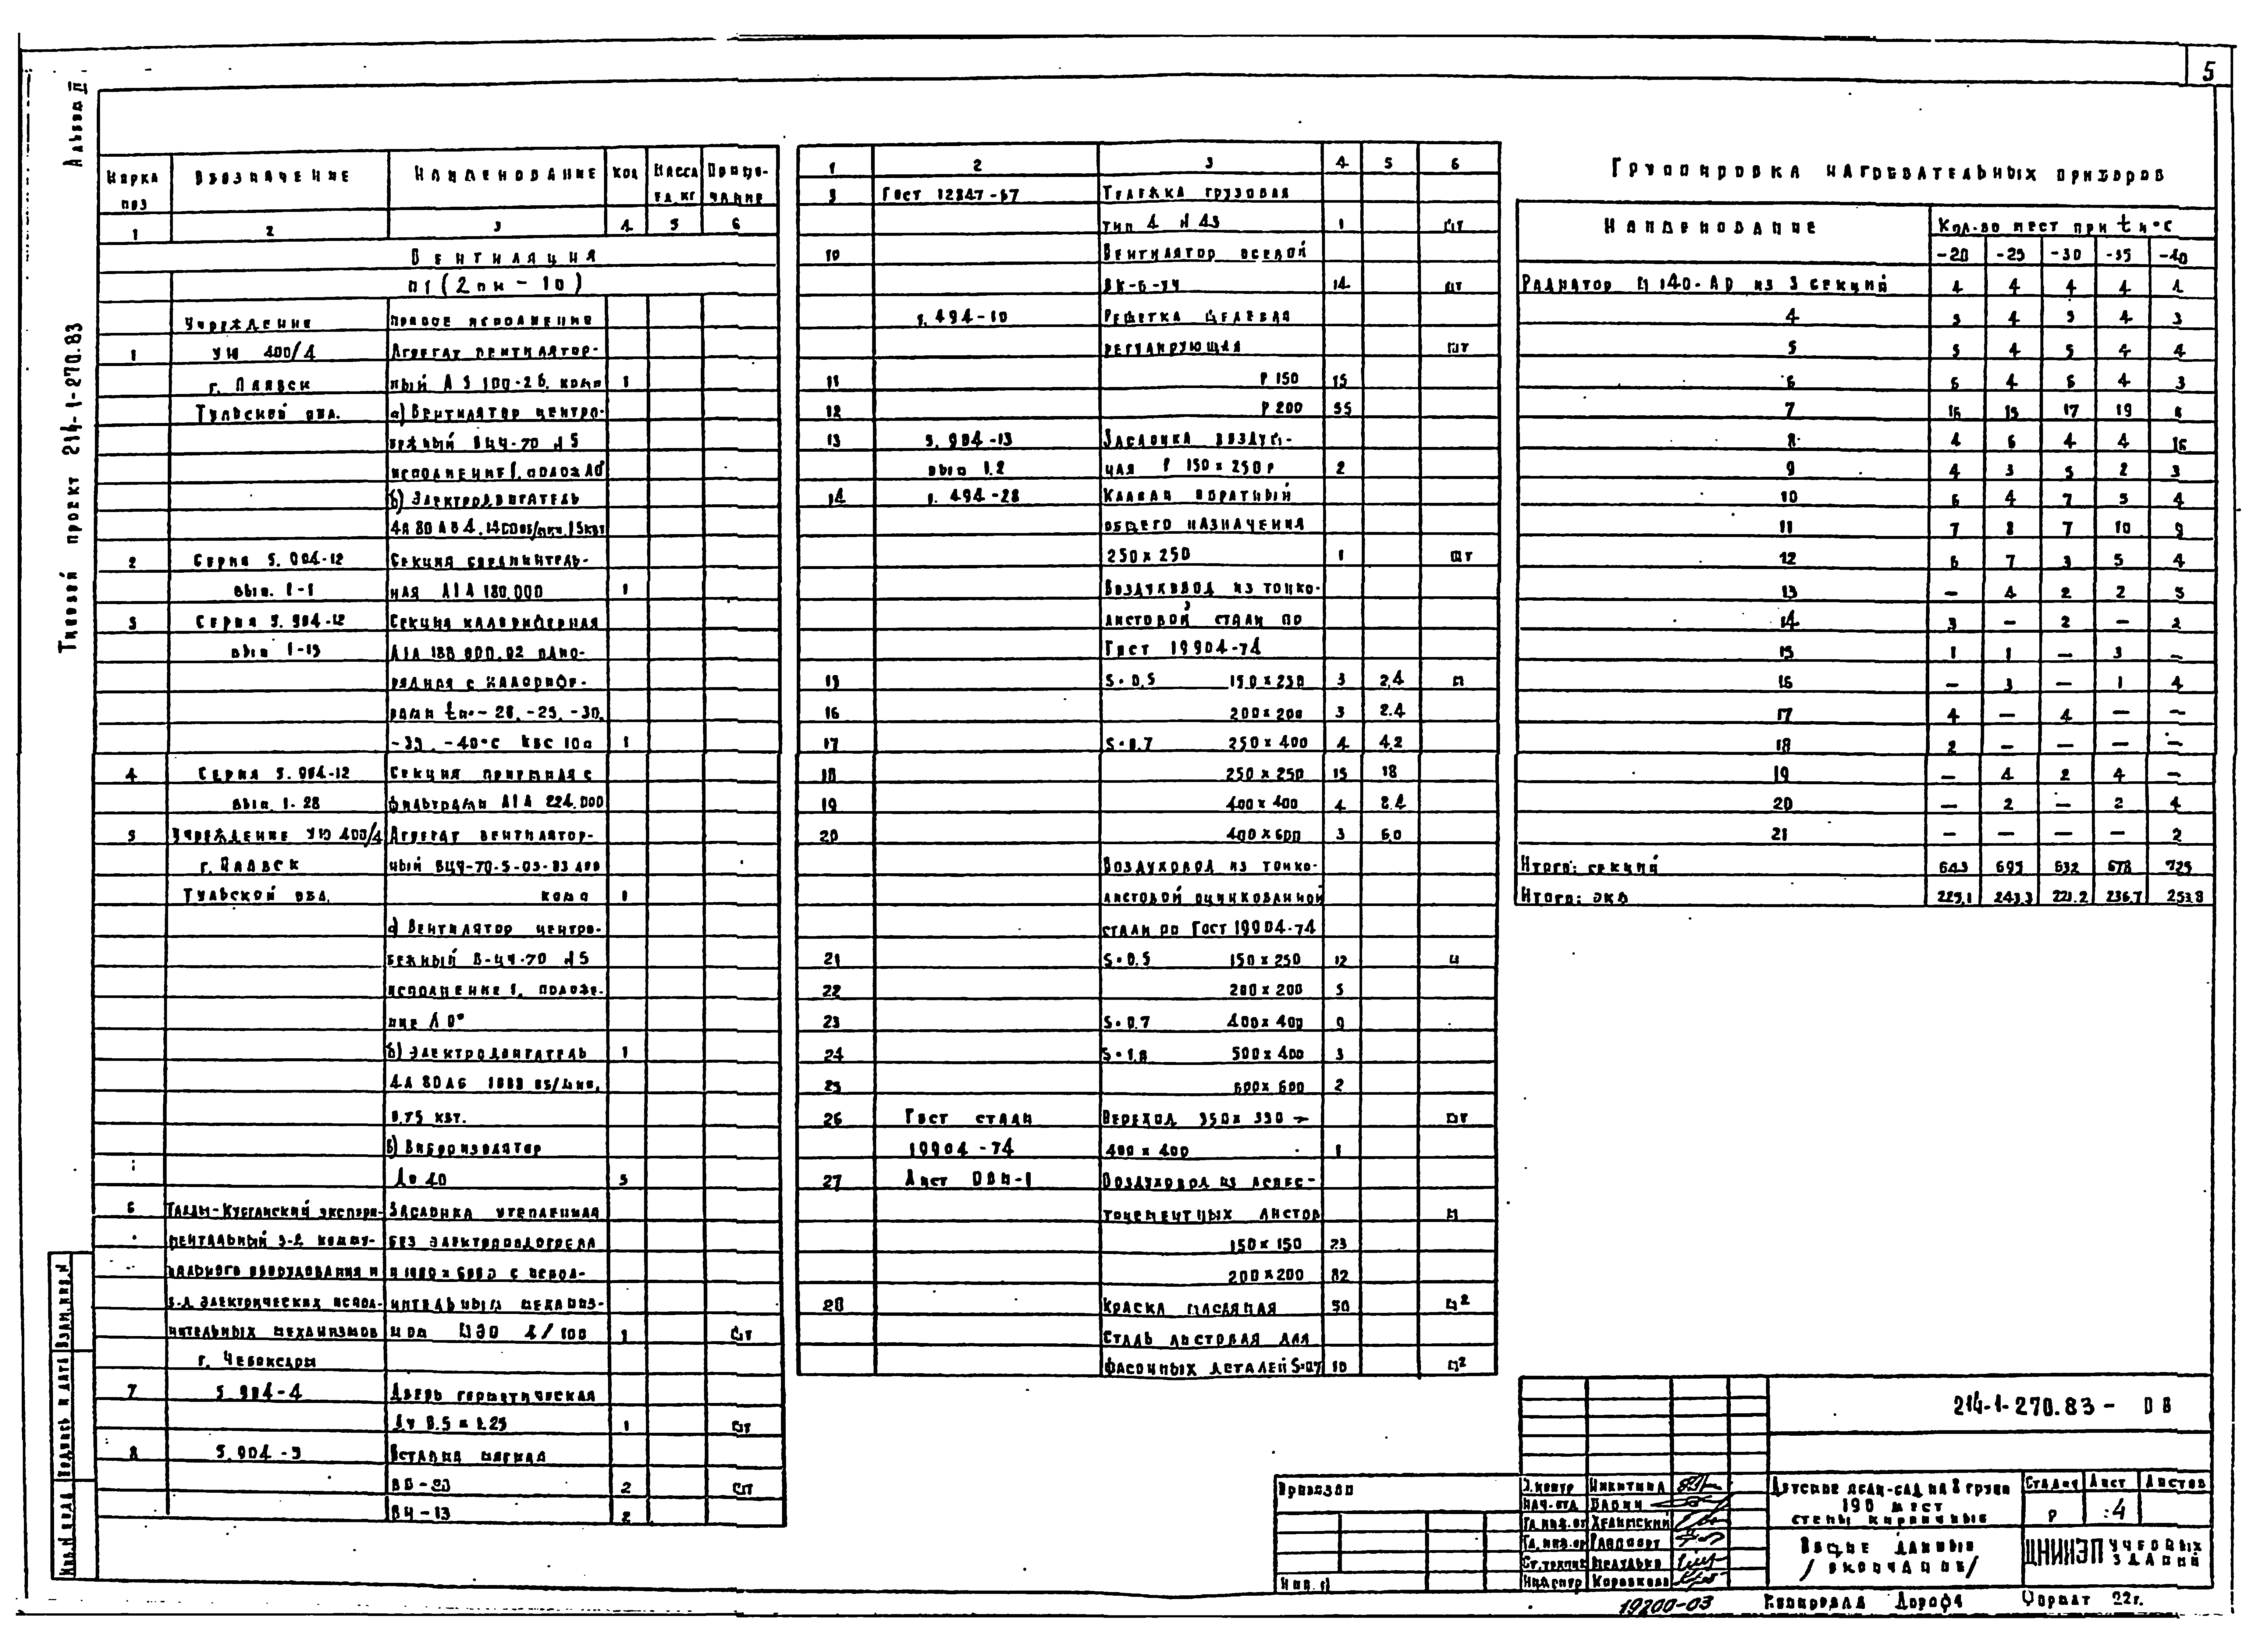 5
Альбом III
Типовой проект 214-1-270.83
Марка поз | Обозначение | Наименование | Кол | Масса ед. кг | Примечание
1 | 2 | 3 | 4 | 5 | 6
Вентиляция
П1 (2ПК-10)
Учреждение | Правое исполнение
1 | УЮ 400/4 | Агрегат вентилятор-
г. Плавск | ный А 5 100-2б. комп | 1
Тульской обл. | а) Вентилятор центро-
бежный ВЦ4-70 №5
исполнение 1, полож Л0°
б) Электродвигатель
2 | Серия 5.904-12 | Секция соединитель-
вып. 1-1 | ная А1А 180.000 | 1
3 | Серия 5.904-12 | Секция калориферная
вып 1-13 | А1А 188 000.02 одно-
рядная с калорифе-
рами tн=-20, -25, -30,
-35, -40°С КВС 10п | 1
4 | Серия 5.904-12 | Секция приемная с
вып. 1-28 | фильтрами А1А 224.000
5 | Учреждение УЮ 400/4 | Агрегат вентилятор-
г. Плавск | ный ВЦ4-70-5-03-
Тульской обл. | комп | 1
а) Вентилятор центро-
бежный В-Ц4-70 №5
исполнение 1, положе-
ние Л 0°
б) Электродвигатель | 1
4А 80А6 1000 об/мин,
0,75 квт.
в) Виброизолятор
До 40 | 5
6 | Талды-Курганский экспери- | Заслонка утепленная
ментальный з-д комму- | без электроподогрева
нального оборудования и | п 1000 х 600э с испол-
з-д электрических испол- | нительным механиз-
нительных механизмов | мом МЭО 4/100 | 1 | шт
г. Чебоксары
7 | 5.904-4 | Дверь герметическая
Ду 0.5 х 1.25 | 1 | шт
8 | 5.904-5 | Вставка мягкая
2 | шт
ВН-13 | 2
1 | 2 | 3 | 4 | 5 | 6
9 | Гост 12847-67 | Тележка грузовая
тип 4 | 1 | шт
10 | Вентилятор осевой
14 | шт
1.494-10 | Решетка щелевая
регулирующая | шт
11 | Р 150 | 15
12 | Р 200 | 55
13 | 5.904-13 | Заслонка воздуш-
вып 1.2 | ная Р 150 х 250 Р | 2
14 | 1.494-28 | Клапан обратный
общего назначения
250 х 250 | 1 | шт
Воздуховод из тонко-
листовой стали по
Гост 19904-74
15 | S=0.5 150 х 250 | 3 | 2,4 | м
16 | 200 х 200 | 3 | 2.4
17 | S=0.7 250 х 400 | 4 | 4.2
18 | 250 х 250 | 15 | 18
19 | 400 х 400 | 4 | 8.4
20 | 400 х 600 | 3 | 6.0
Воздуховод из тонко-
листовой оцинкованной
стали по Гост 19904-74
21 | S=0.5 150 х 250 | 12 | м
22 | 200 х 200 | 5
23 | S=0.7 400 х 400 | 9
24 | S=1.0 500 х 400 | 3
25 | 600 х 600 | 2
26 | Гост стали | Переход 350х 330 → | шт
19904-74 | 400 х 400 | 1
27 | Лист ОВН-1 | Воздуховод из асбес-
тоцементных листов | м
150 х 150 | 23
200 х 200 | 82
28 | Краска масляная | 50 | м²
Сталь листовая для
фасонных деталей S=0.7 | 10 | м²
Группировка нагревательных приборов
Наименование | Кол-во мест при tн °С
-20 | -25 | -30 | -35 | -40
Радиатор М 140-АО из 3 секций | 4 | 4 | 4 | 4 | 4
4 | 5 | 4 | 5 | 4 | 3
5 | 5 | 4 | 5 | 4 | 4
6 | 6 | 4 | 6 | 4 | 3
7 | 16 | 15 | 17 | 19 | 8
8 | 4 | 6 | 4 | 4 | 16
9 | 4 | 3 | 5 | 2 | 3
10 | 6 | 4 | 7 | 5 | 4
11 | 7 | 8 | 7 | 10 | 9
12 | 6 | 7 | 3 | 5 | 4
13 | – | 4 | 2 | 2 | 5
14 | 3 | – | 2 | – | 2
15 | 1 | 1 | – | 3 | –
16 | – | 3 | – | 1 | 4
17 | 4 | – | 4 | – | –
18 | 2 | – | – | – | –
19 | – | 4 | 2 | 4 | –
20 | – | 2 | – | 2 | 4
21 | – | – | – | – | 2
Итого: секций | 643 | 695 | 632 | 678 | 725
Итого: экв | 225,1 | 243.3 | 221.2 | 236.7 | 253.8
214-1-270.83 - ОВ
Привязан
Инв. №
Н.контр Никитина
Нач.отд.
Гл.инж.от Хлимский
Гл.инж.пр Раппопорт
Ст.техник
Н.контр
Детские ясли-сад на 8 групп
190 мест
стены кирпичные
Стадия | Лист | Листов
Р | 4
Общие данные
/окончание/
ЦНИИЭП учебных зданий
19200-03
Копировала Дороф
Формат 22г.
Инв. № подл
Подпись и дата
Взам. инв. №